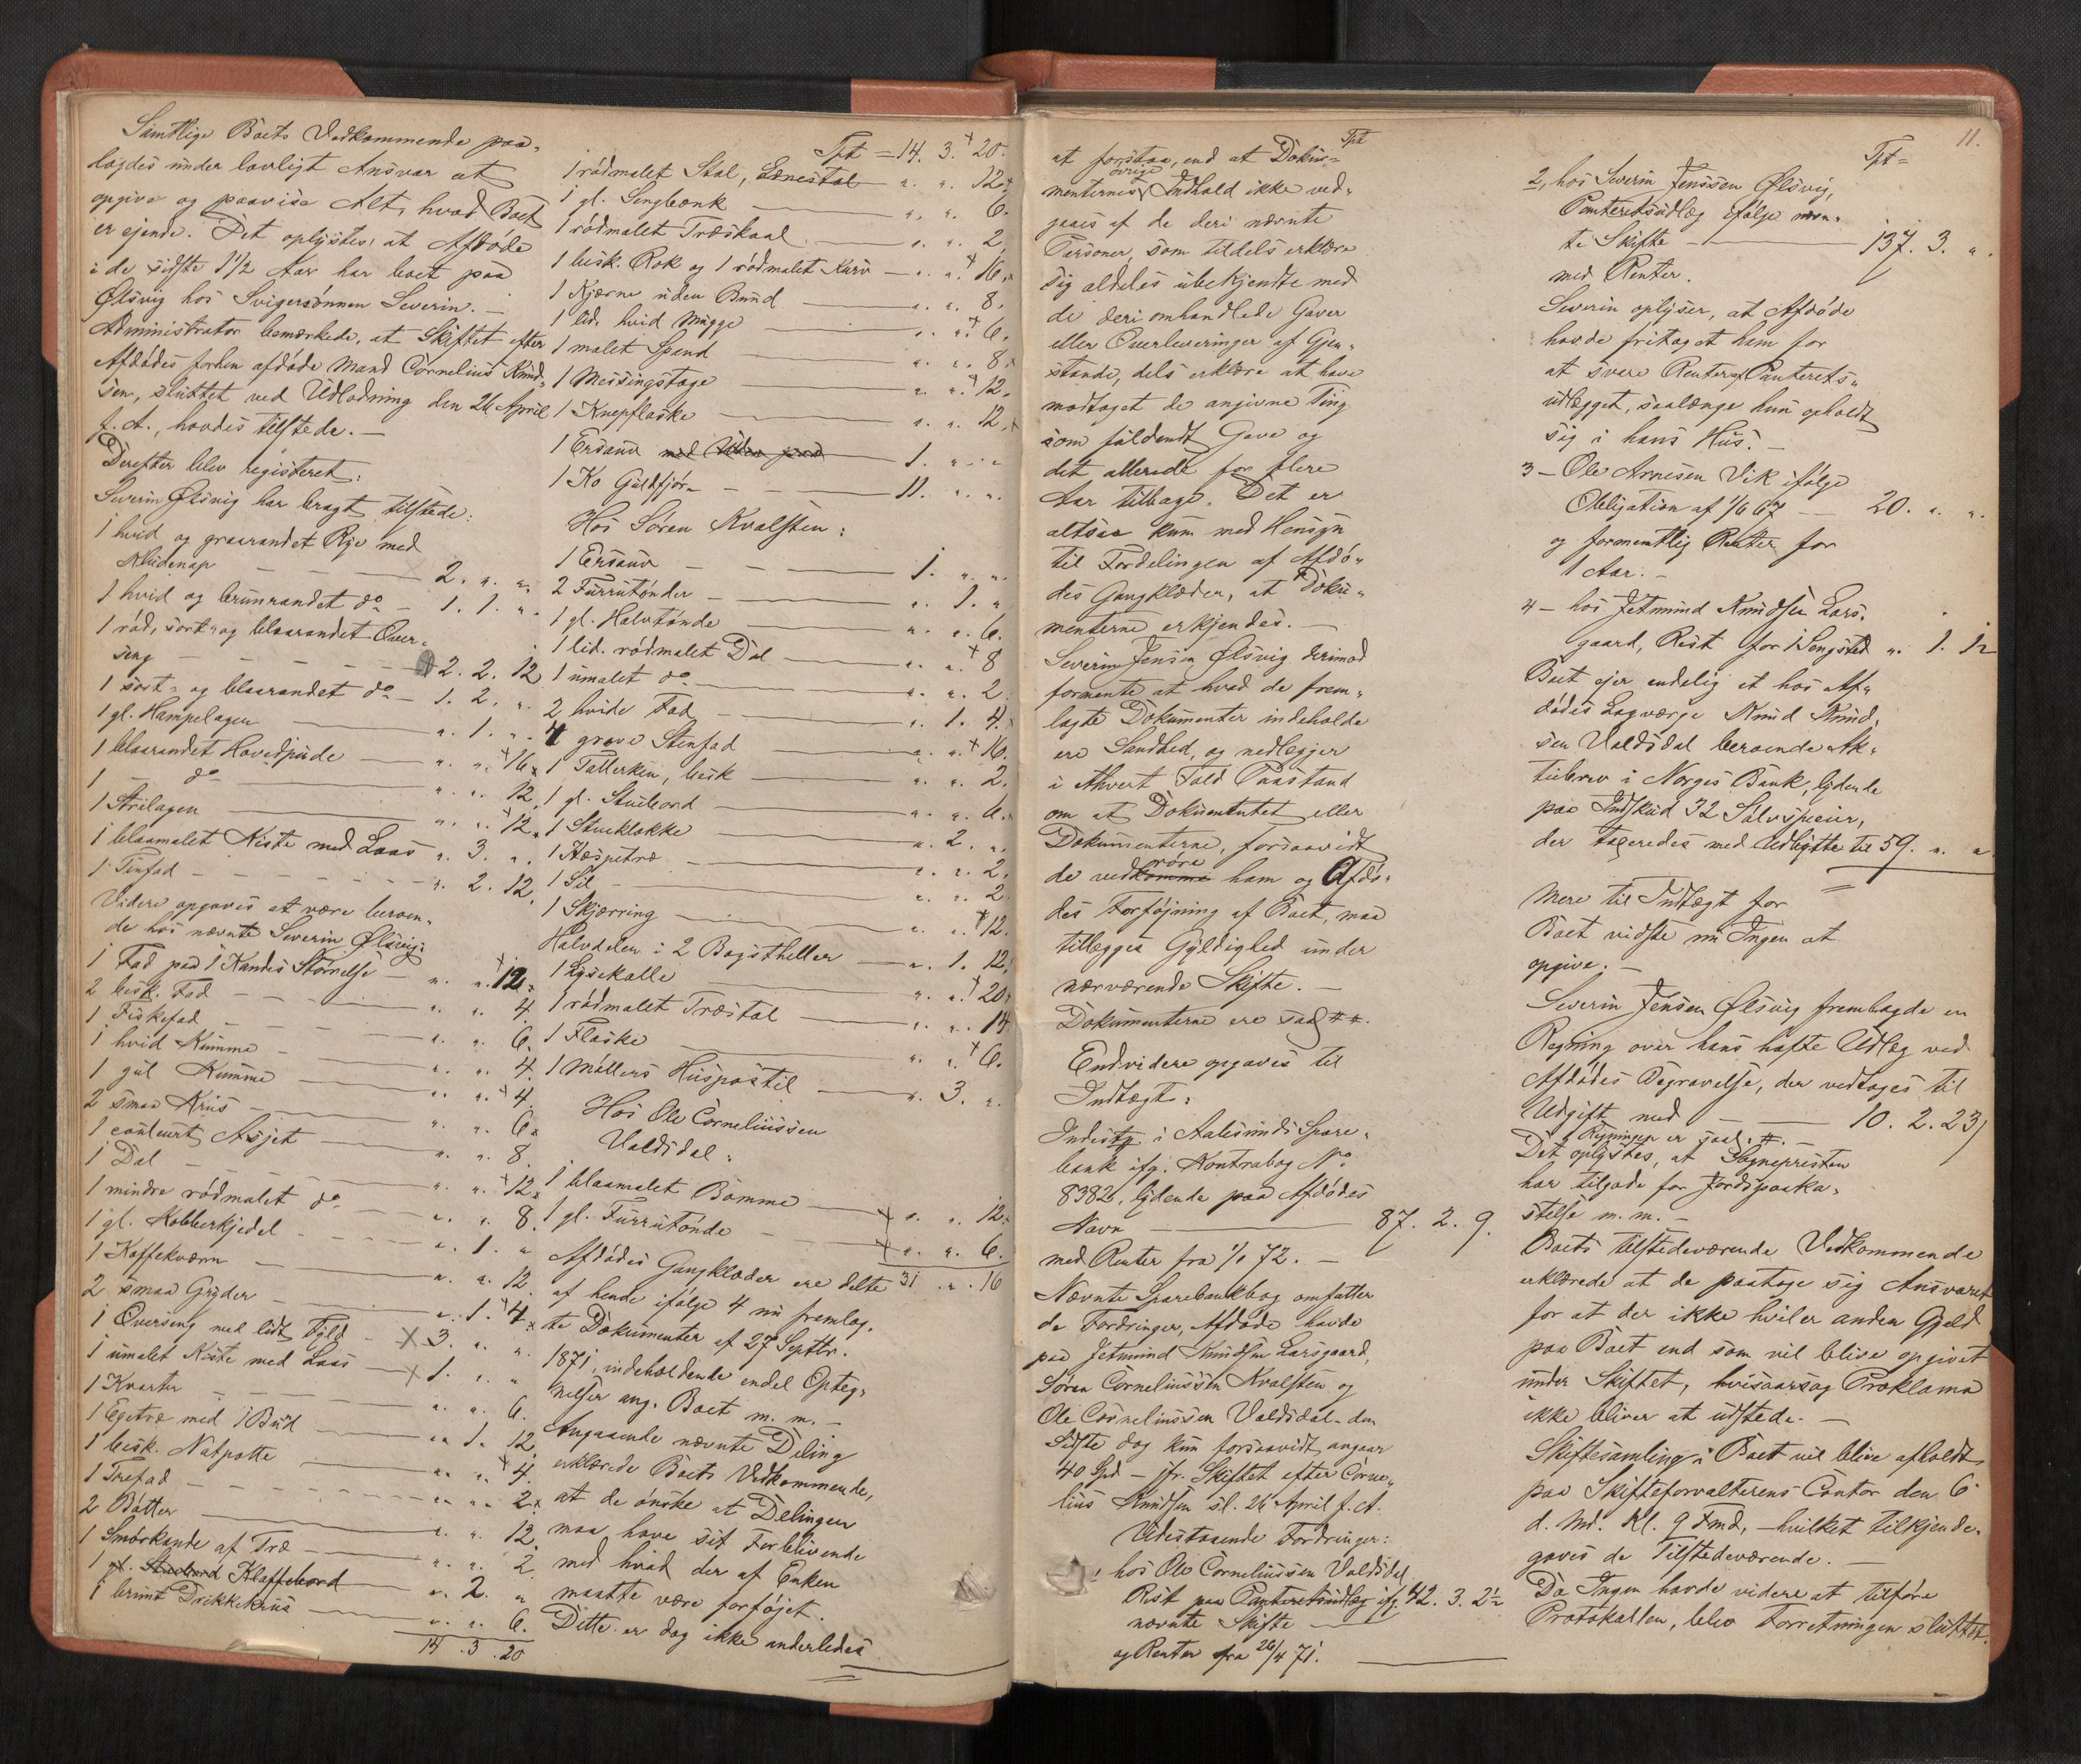 Samtlige Boets Vedkommende paa-
lagdes under lovligt Ansvar at
opgive og paavise Alt, hvad Boet
er ejende. Det oplystes at Afdøde
i de sidste 1 1/2 Aar har boet paa
Ølsvig hos Svigersønnen Severin. —
Administrator bemærkede, at Skiftet efter
Afdødes forhen afdøde Mand Cornelius Knud-
sen, sluttet ved Udlodning den 26 April
f. A., havdes tilstede. —
Derefter blev registreret:
Severin Ølsvig har bragt tilstede:
1 hvid og graarandet Rye med
— 2. " "
1 hvid og brunrandet do — 1. 1. "
1 rød, sort- og blaarandet Over-
seng — 2. 2. 12
1 sort- og blaarandet do — 1. 2. "
1 gl. Hampelagen — " 1. "
1 blaarandet Hovedpude — " " 16
1 do — " " 12
1 Strilagen — " " 12
1 blaamalet Kiste med Laas " 3. "
1 Tinfad — " 2. 12
Videre opgaves at være beroen-
de hos nævnte Severin Ølsvig:
1 Fad paa 1 Kandes Størrelse — " " 12
2 besk. Fad — " " 4
1 Fiskefad — " " 6
1 hvid Kumme — " " 4
1 gul Kumme — " " 4
2 smaa Krus — " " 6
1 couleurt Asjet — " " 8
1 Dal — " " 12
1 mindre rødmalet do — " " 8
1 gl. Kobberkjedel — " 1. "
1 Kaffekværn — " " 12
2 smaa Gryder — " 1. 4
1 Overseng med lidt Fyld — 3. " "
1 umalet Kiste med Laas — 1. " "
1 Kvarter — " " 6.
1 Egetræ med 1 Bund — " 1. 12
1 besk. Natpotte — " " 4
1 Trefad — " " 2
2 Bøtter — " " 12
1 Smørkande af Træ — " " 2
1 gl. Stuebord Klaffebord — " 2. "
1 brunt Drikkekrus — " " 6.
14. 3. 20
Tpt = 14. 3. 20.
1 rødmalet Stol, Lænestol — " " 12
1 gl. Sengbænk — " " 6.
1 rødmalet Træskaal — " " 2
1 besk. Rok og 1 rødmalet Kurv — " " 16
1 Kjærne uden Bund — " " 8.
1 lid. hvid Mugge — " " 6.
1 malet Spand — " " 8
1 Messingstage — " " 12
1 Knepflaske — " " 12
1 Ersaud med — 1. " "
1 Ko Guldfjør — 11. " "
Hos Søren Kvalsten:
1 Ersaud — 1. " "
2 Furrutønder — " 1. "
1 gl. Halvtønde — " " 6.
1 lid. rødmalet Dal — " " 8
1 umalet do — " " 2
2 hvide Fad — " 1. 4.
4 grove Stenfad — " " 16.
1 Tallerken, besk — " " 2.
1 gl. Stuebord — " " 6.
1 Stueklokke — " 2. "
1 Hæspetræ — " " 2.
1 Sil — " " 2
1 Skjærring — " " 12.
Halvdelen i 2 Bagstheller — " 1. 12
1 Lysekalle — " " 20
1 rødmalet Træstol — " " 14
1 Flaske — " " 6.
1 Møllers Huspostil — " 3. "
Hos Ole Corneliussen
Valdsdal:
1 blaamalet Bomme — " " 12
1 gl. Furrutønde — " " 6.
31 " 16
Afdødes Gangklæder ere delte
af hende ifølge 4 nu fremlag-
te Dokumenter af 27 Septbr.
1871, indeholdende endel Opteg-
nelser ang. Boet m. m. —
Angaaende nævnte Deling
erklærede Boets Vedkommende,
at de ønske at Delingen
maa have sit Forblivende
med hvad der af Enken
maatte være forføjet.
Dette er dog ikke anderledes
Tpt
at forstaa, end at Doku-
menternes øvrige Indhold ikke ved-
gaaes af de deri nævnte
Personer, som tildels erklære
sig aldeles ubekjendte med
de deri omhandlede Gaver
eller Overleveringer af Gjen-
stande, dels erklære at have
modtaget de angivne Ting
som fuldendt Gave og
det allerede for flere
Aar tilbage. Det er
altsaa kun med Hensyn
til Fordelingen af Afdø-
des Gangklæder, at Doku-
menterne erkjendes. —
Severin Jensen Ølsvig derimod
formente at hvad de frem-
lagte Dokumenter indeholde
ere Sandhed, og nedlægger
i Ethvert Fald Paastand
om at Dokumentet eller
Dokumenterne, forsaavidt
de vedkomme røre ham og Afdø-
des Forføjning af Boet, maa
tillægges Gyldighed under
nærværende Skifte. —
Dokumenterne ere saal ##.
Endvidere opgaves til
Indtægt:
Indestg. i Aalesunds Spare-
bank ifg. Kontrabog No
8382, lydende paa Afdødes
Navn — 87. 2. 9.
med Renter fra 1/1 72. —
Nævnte Sparebankbog omfatter
de Fordringer, Afdøde havde
paa Jetmund Knudsen Larsgaard,
Søren Corneliussen Kvalsten og
Ole Corneliussen Valdsdal - den
Sidste dog kun forsaavidt angaar
40 Spd — jfr. Skiftet efter Corne-
lius Knudsen sl. 26 April f. A.
Udestaaende Fordringer:
1 hos Ole Corneliussen Valdsdal
Rest paa Panteretsudlæg ifg. 42. 3. 2 1/2
nævnte Skifte —
og Renter fra 26/4 71. —
11.
Tpt =
2, hos Severin Jenssen Ølsvig,
Panteretsudlæg ifølge nævn-
te Skifte — 137. 3. "
med Renter.
Severin oplyser, at Afdøde
havde fritaget ham for
at svare Renter af Panterets-
udlægget, saalænge hun opholdt
sig i hans Hus. —
3 — Ole Arnesen Vik ifølge
Obligation af 1/6 67 — 20. " "
og formentlig Renter for
1 Aar. —
4 — hos Jetmund Knudsen Lars-
gaard, Rest for 1 Sengsted " 1. 12
Boet ejer endelig et hos Af-
dødes Lagværge Knud Knud-
sen Valdsdal beroende Ak-
tiebrev i Norges Bank, lydende
paa Indskud 32 Sølvspecier,
der taxeredes med Udbytte til 59. " "
Mere til Indtægt for
Boet vidste nu Ingen at
opgive. —
Severin Jensen Ølsvig fremlagde en
Regning over hans hafte Udlæg ved
Afdødes Begravelse, der vedtoges til
Udgift med — 10. 2. 23
Regningen er saal. #. —
Det oplystes, at Sognepresten
har tilgode for Jordspaaka-
stelse m. m. —
Boets tilstedeværende Vedkommende
erklærede at de paatage sig Ansvaret
for at der ikke hviler anden Gjeld
paa Boet end som vil blive opgivet
under Skiftet, hvisaarsag Proklama
ikke bliver at udstede. —
Skiftesamling i Boet vil blive afholdt
paa Skifteforvalterens Contor den 6
d. Md. Kl. 9 Fmd, — hvilket tilkjende-
gaves de Tilstedeværende. —
Da Ingen havde videre at tilføre
Protokollen, blev Forretningen sluttet.